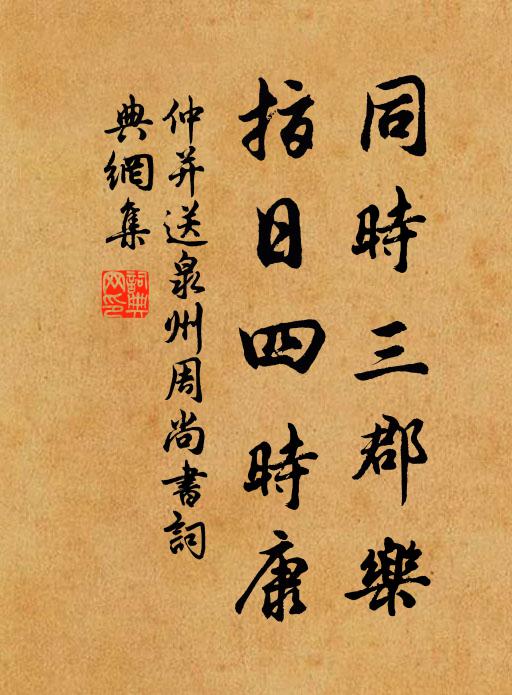 同時三郡樂
指日四時康
仲并送泉州周尚書詞
典網集
詞典网印